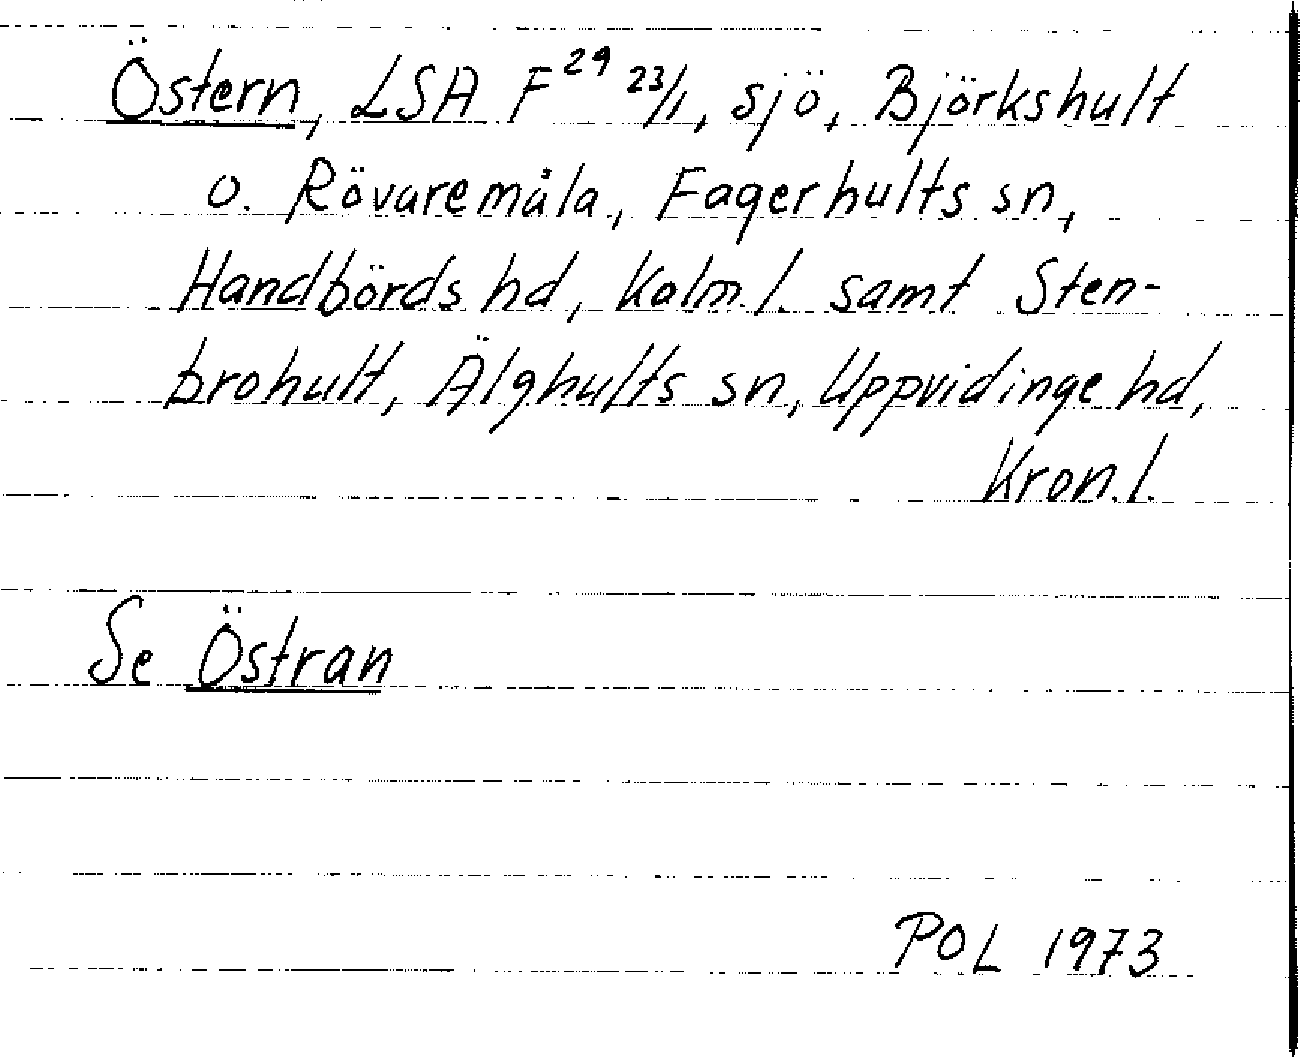 Östern, LSA F²⁹ 23/1, sjö, Björkshult
o. Rövaremåla, Fagerhults sn,
Handbörds hd, Kalm. l. samt Sten-
brohult, Älghults sn, Uppvidinge hd,
Kron. l.
Se Östran
POL 1973